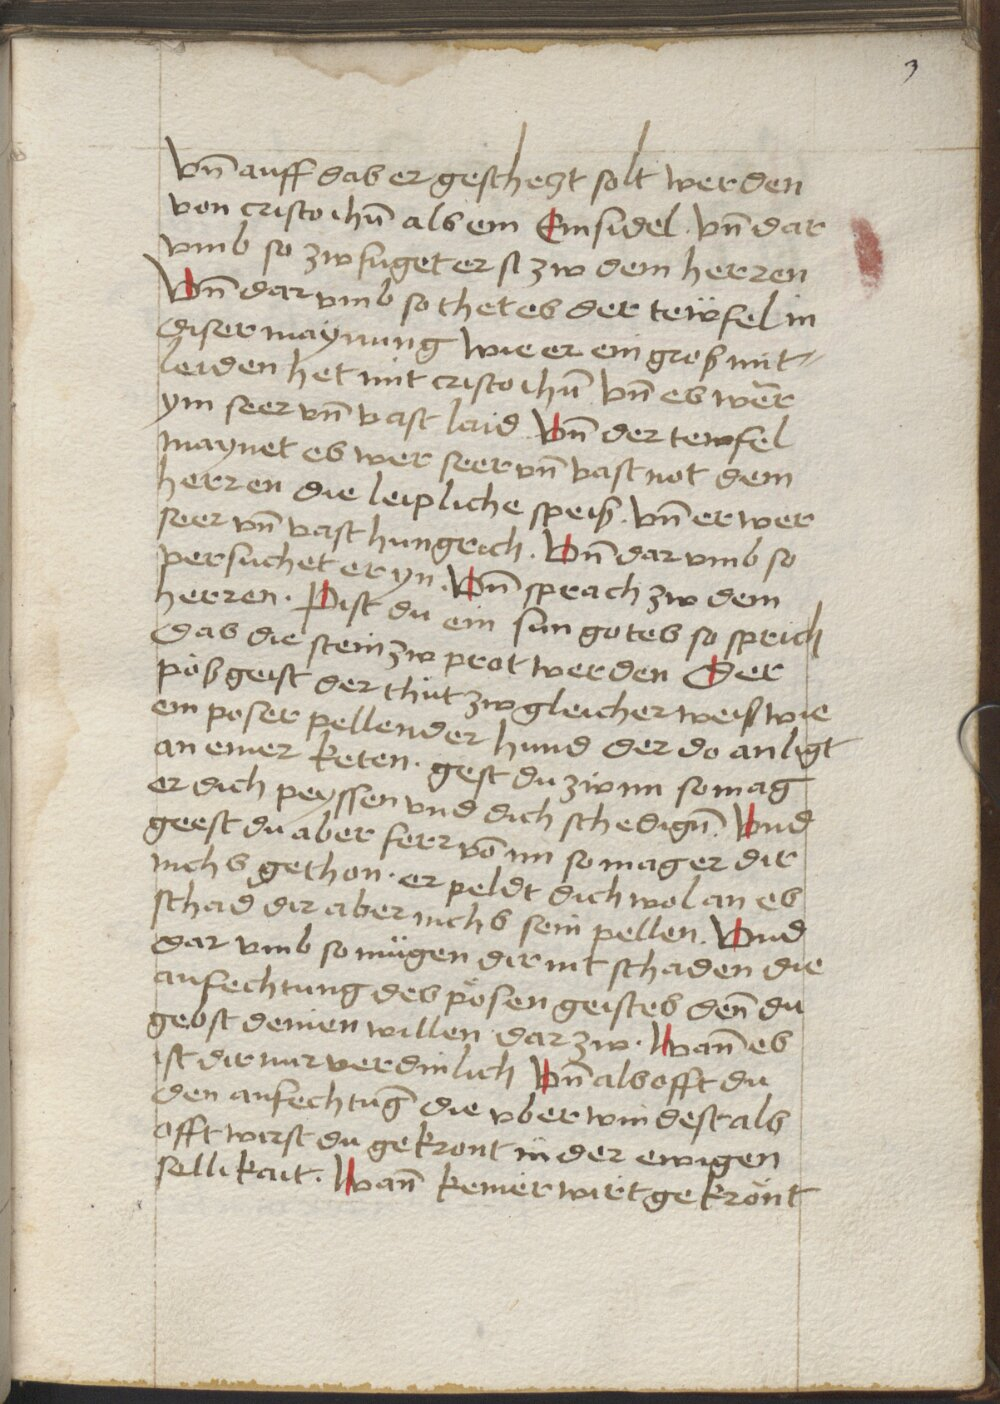 3
Vn̄ auff das er geschetzt solt werden
von cristo ihū als ein Einsidel. vn̄ dar
vmb so zw fuget er si zw dem herren
Vn̄ dar vmb so thet es der tewfel in
diser maynung wie er ein groß mit-
leiden het mit cristo ihū vn̄ es wer
ym seer vn̄ vast laid Vn̄ der tewfel
maynet es wer seer vn̄ vast not dem
herren die leipliche speiß. vn̄ er wer
seer vn̄ vast hungrich. Vn̄ dar vmb so
versuchet er yn. Vn̄ sprach zw dem
herren. Pist du ein sun gotes so sprich
das die stein zw prot werden Der
pöß geist der thüt zw gleicher weiß wie
ein poser pellender hund der do an ligt
an einer keten. gest du zw im so mag
er dich peyssen vnd dich schedign̄. Vnd
geest du aber ferr vō im so mag er dir
nichs gethon. er peldt dich wol an es
schad dir aber nichs sein pellen. Vnd
dar vmb so mügen dir nit schaden die
anfechtung des pösen geistes den̄ du
gebst deinen willen dar zw. Wan̄ es
ist dir nur verdinlich Vn̄ als offt du
den anfechtūg die vber windest als
offt wirst du gekront in der ewigen
sellikait. Wan̄ keiner wirt gekrönt